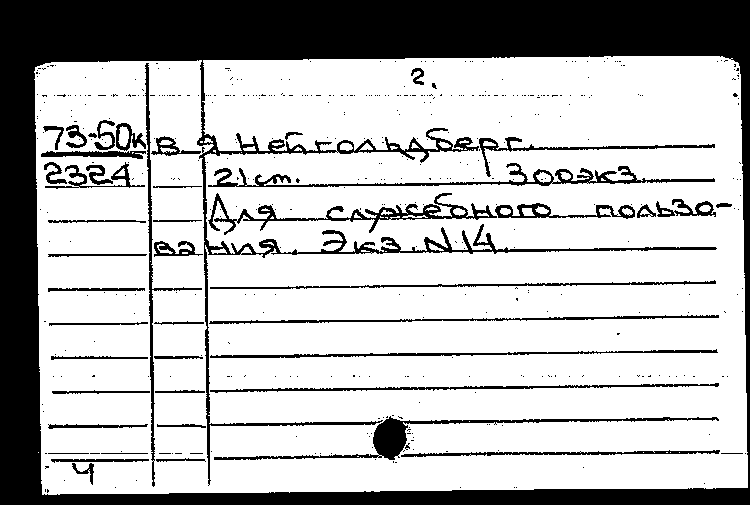 2.
73-50к в Я Нейгольдберг.
2324 21 ст. 300экз.
Для служебного пользо-
вания. Экз. N 14.
Ч